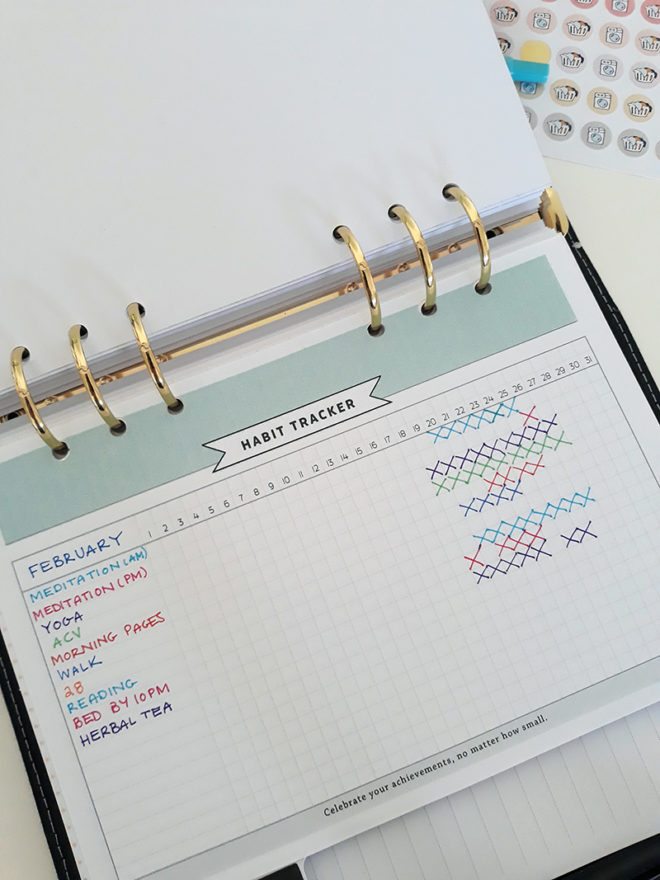 HABIT TRACKER
1 2 3 4 5 6 7 8 9 10 11 12 13 14 15 16 17 18 19 20 21 22 23 24 25 26 27 28 29 30 31
FEBRUARY
MEDITATION (AM)
MEDITATION (PM)
YOGA
ACV
MORNING PAGES
WALK
28
READING
BED BY 10PM
HERBAL TEA
Celebrate your achievements, no matter how small.